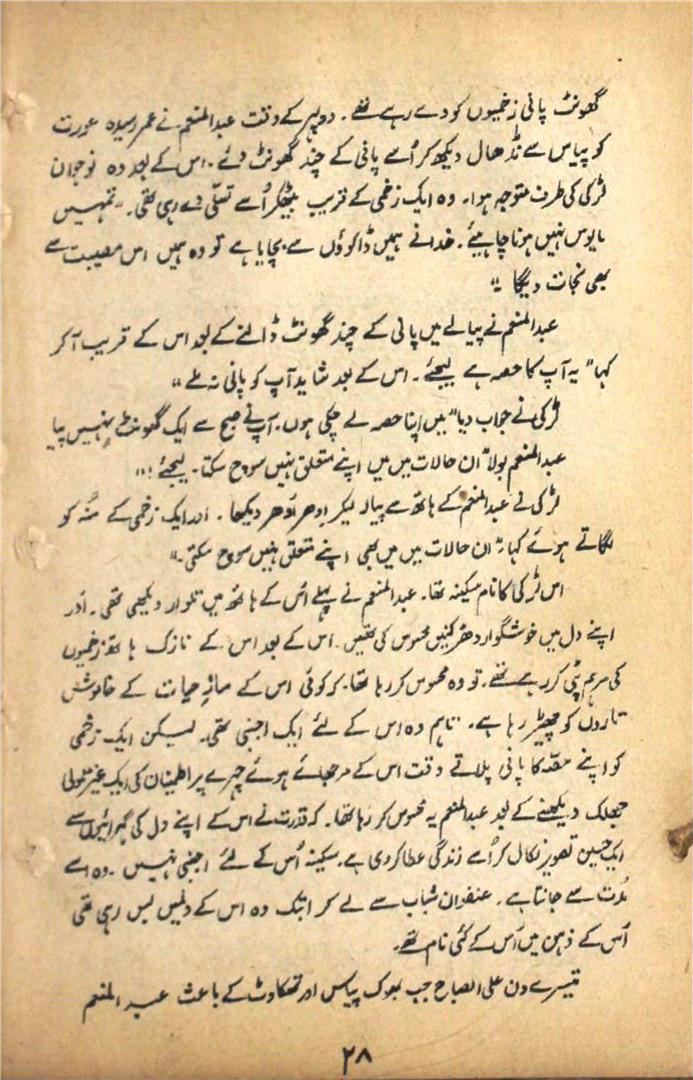 گھونٹ پانی زخمیوں کو دے رہے تھے۔ دوپہر کے وقت عبدالمنعم نے عمر رسیدہ عورت
کو پیاس سے نڈھال دیکھ کر اُسے پانی کے چند گھونٹ دئے۔ اس کے بعد وہ نوجوان
لڑکی کی طرف متوجہ ہوا۔ وہ ایک زخمی کے قریب بیٹھکر اُسے تسلّی دے رہی تھی۔ "تمہیں
مایوس نہیں ہونا چاہیئے۔ خدا نے ہمیں ڈاکوؤں سے بچایا ہے تو وہ ہمیں اس مصیبت سے
بھی نجات دیگا"
عبدالمنعم نے پیالے میں پانی کے چند گھونٹ ڈالنے کے بعد اس کے قریب آ کر
کہا "یہ آپ کا حصہ ہے لیجئے۔ اس کے بعد شاید آپ کو پانی نہ ملے"
لڑکی نے جواب دیا "میں اپنا حصہ لے چکی ہوں۔ آپ نے صبح سے ایک گھونٹ نہیں پیا
عبدالمنعم بولا "ان حالات میں میں اپنے متعلق نہیں سوچ سکتا۔ لیجئے!"
لڑکی نے عبدالمنعم کے ہاتھ سے پیالہ لیکر ادھر اُدھر دیکھا۔ اور ایک زخمی کے مُنہ کو
لگاتے ہوئے کہا "ان حالات میں میں بھی اپنے متعلق نہیں سوچ سکتی۔"
اس لڑکی کا نام سکینہ تھا۔ عبدالمنعم نے پہلے اُس کے ہاتھ میں تلوار دیکھی تھی۔ اور
اپنے دل میں خوشگوار دھڑکنیں محسوس کی تھیں۔ اس کے بعد اس کے نازک ہاتھ زخمیوں
کی مرہم پٹی کر رہے تھے۔ تو وہ محسوس کر رہا تھا۔ کہ کوئی اس کے سازِ حیات کے خاموش
تاروں کو چھیڑ رہا ہے۔ تاہم وہ اس کے لئے ایک اجنبی تھی۔ لیکن ایک زخمی
کو اپنے حصّہ کا پانی پلاتے وقت اس کے مرجھائے ہوئے چہرے پر اطمینان کی ایک غیر معمولی
جھلک دیکھنے کے بعد عبدالمنعم یہ محسوس کر رہا تھا۔ کہ قدرت نے اس کے اپنے دل کی گہرائیوں سے
ایک حسین تصویر نکال کر اُسے زندگی عطا کر دی ہے۔ سکینہ اُس کے لئے اجنبی نہیں۔ وہ اسے
مُدت سے جانتا ہے۔ عنفوانِ شباب سے لے کر ابتک وہ اس کے دلمیں بس رہی تھی
اُس کے ذہن میں اُس کے کئی نام تھے۔
تیسرے دن علی الصباح جب بھوک پیاس اور تھکاوٹ کے باعث عبدالمنعم
۲۸